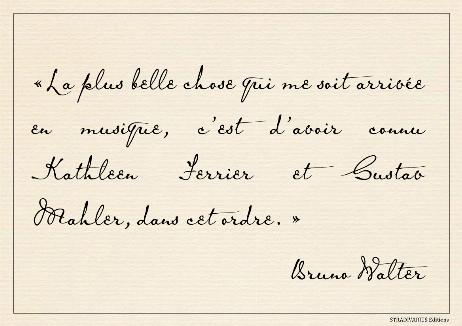 « La plus belle chose qui me soit arrivée
en musique, c'est d'avoir connu
Kathleen Ferrier et Gustav
Mahler, dans cet ordre. »
Bruno Walter
STRADIVARIUS Editions